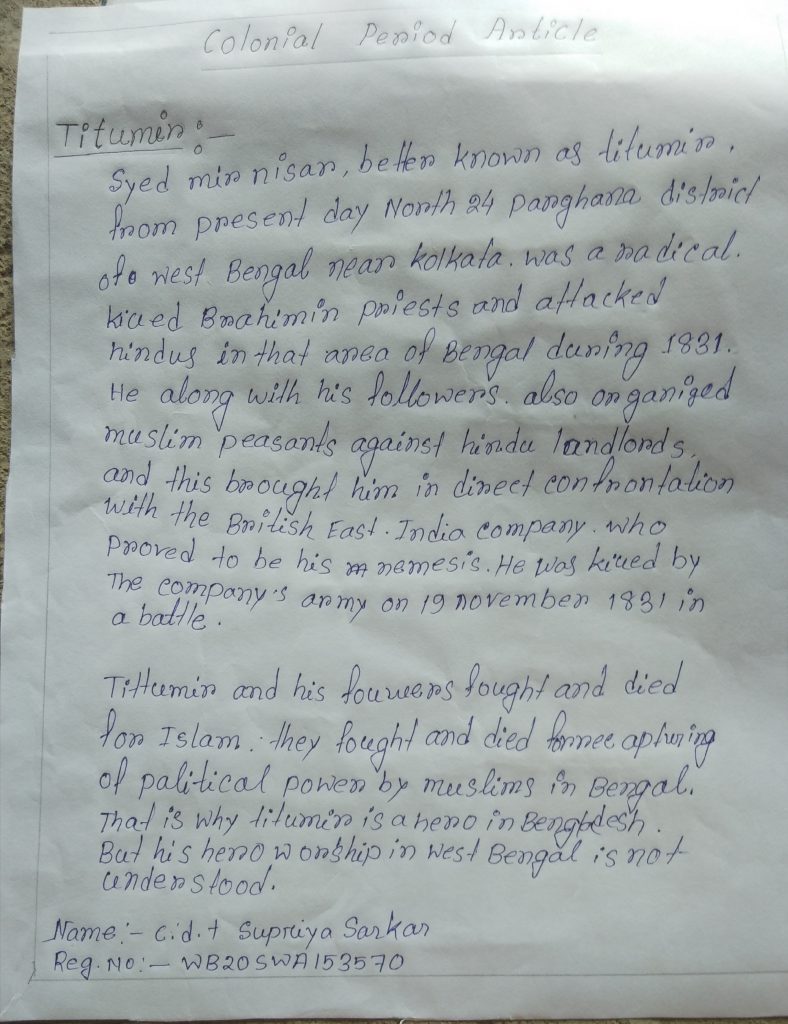 Colonial Period Article
Titumir :-
Syed mir nisar, better known as titumir,
from present day North 24 parghana district
of west Bengal near kolkata. was a radical.
killed Brahimin priests and attacked
hindus in that area of Bengal during 1831.
He along with his followers. also organized
muslim peasants against hindu landlords,
and this brought him in direct confrontation
with the British East. India company. who
proved to be his nemesis. He was killed by
The company's army on 19 november 1831 in
a battle.
Tittumir and his fouwers fought and died
for Islam. they fought and died forrecapturing
of palitical power by muslims in Bengal.
That is why titumir is a hero in Bengbdesh.
But his hero worship in West Bengal is not
understood.
Name:- c.d.t Supriya Sarkar
Reg. No:- WB20SWA153570